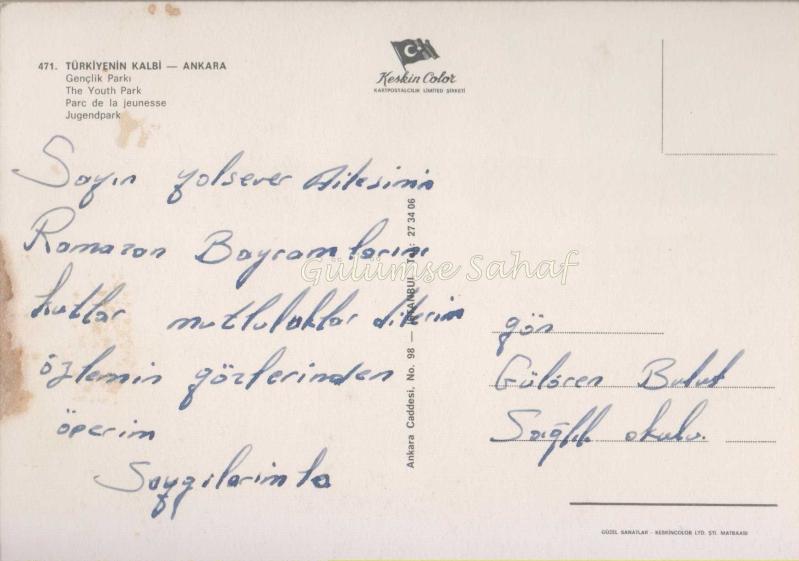 471. TÜRKİYENİN KALBİ — ANKARA
Gençlik Parkı
The Youth Park
Parc de la jeunesse
Jugendpark
Keskin Color
KARTPOSTALCILIK LİMİTED ŞİRKETİ
Sayın Yolsever Ailesinin
Ramazan Bayramlarını
kutlar mutluluklar dilerim
özlemin gözlerinden
öperim
Saygılarımla
Ankara Caddesi, No. 98 — İSTANBUL Tel: 27 34 06
Gülümse Sahaf
gön
Gülören Bulut
Sağlık okulu.
GÜZEL SANATLAR - KESKİNCOLOR LTD. ŞTİ. MATBAASI